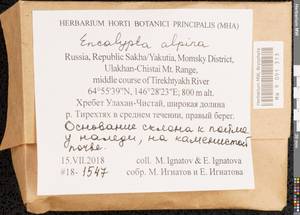 HERBARIUM HORTI BOTANICI PRINCIPALIS (MHA)
Encalypta alpina
Russia, Republic Sakha/Yakutia, Momsky District,
Ulakhan-Chistai Mt. Range,
middle course of Tirekhtyakh River
64°55'39"N, 146°28'23"E; 800 m alt.
Хребет Улахан-Чистай, широкая долина
р. Тирехтях в среднем течении, правый берег.
Основание склона к пойме
у наледи, на каменистой
почве.
15.VII.2018 coll. M. Ignatov & E. Ignatova
#18- 1547 собр. М. Игнатов и Е. Игнатова